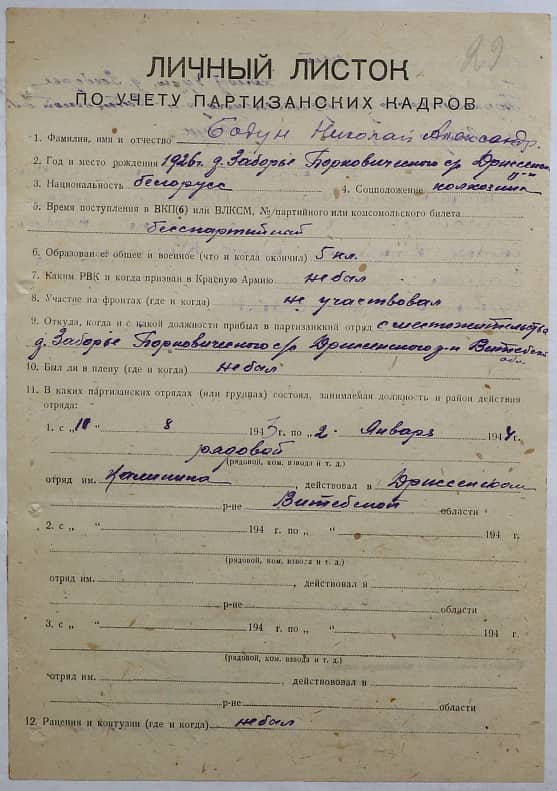 29
ЛИЧНЫЙ ЛИСТОК
ПО УЧЕТУ ПАРТИЗАНСКИХ КАДРОВ
1. Фамилия, имя и отчество Бодун Николай Александр.
2. Год и место рождения 1926г. д. Заборье Борковического с/с Дриссенск. р-н
3. Национальность белорусс 4. Соцположение колхозник
5. Время поступления в ВКП(б) или ВЛКСМ, № партийного или комсомольского билета
беспартийный
6. Образование общее и военное (что и когда окончил) 5 кл.
7. Каким РВК и когда призван в Красную Армию не был
8. Участие на фронтах (где и когда) не участвовал
9. Откуда, когда и с какой должности прибыл в партизанкий отряд с местожительства
д. Заборье Борковического с/с Дриссенского р-н Витебск. обл.
10. Был ли в плену (где и когда) не был
11. В каких партизанских отрядах (или группах) состоял, занимаемая должность и район действия
отряда:
1. с „ 8 1943 г. по „2. Января 1944 г.
рядовой
(рядовой, ком. взвода и т. д.)
отряд им. Калинина, действовал в Дриссенском
р-не Витебской области
2. с „ “ 194 г. по „ “ 194 г.
(рядовой, ком. взвода и т. д.)
отряд им. , действовал в
р-не области
3. с „ “ 194 г. по „ “ 194 г.
(рядовой, ком. взвода и т. д.)
отряд им. , действовал в
р-не области
12. Ранения и контузии (где и когда) не был